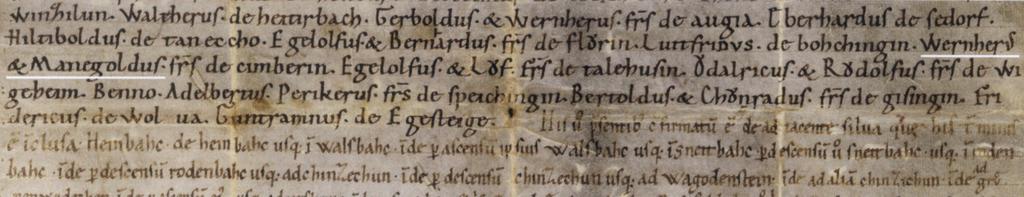 winzilun. Waltherus. de heitirbach. Gerboldus. & Wernherus. frs de augia. Eberhardus de sedorf.
Hiltiboldus. de taneccho. Egelolfus & Bernardus. frs de florin. Luttfridus. de bohchingin. Wernherus
& Manegoldus. frs de cimberin. Egelolfus. & Lůf. frs de talehusin. Ŏdalricus. & Rŏdolfus. frs de wi
geheim. Benno. Adelbertus. Perikerus. frs de speichingin. Bertoldus. & Chŏnradus. frs de gisingin. Fri
dericus. de Wol va. Guntramnus. de Egesteige. His
ē iclusa. Heinbahc. de heinbahc usq; ī walsbahc. īde p ascensū ipsius walsbahc. usq; ī snettbahc. p descensū ů snettbahc. usq; ī roden
bahc. īde p descensū rodenbahc usq; ad chinzechun. īde p descensū chinzechun usq; ad wagodenstein. īde ad aliā chinzichun. īde